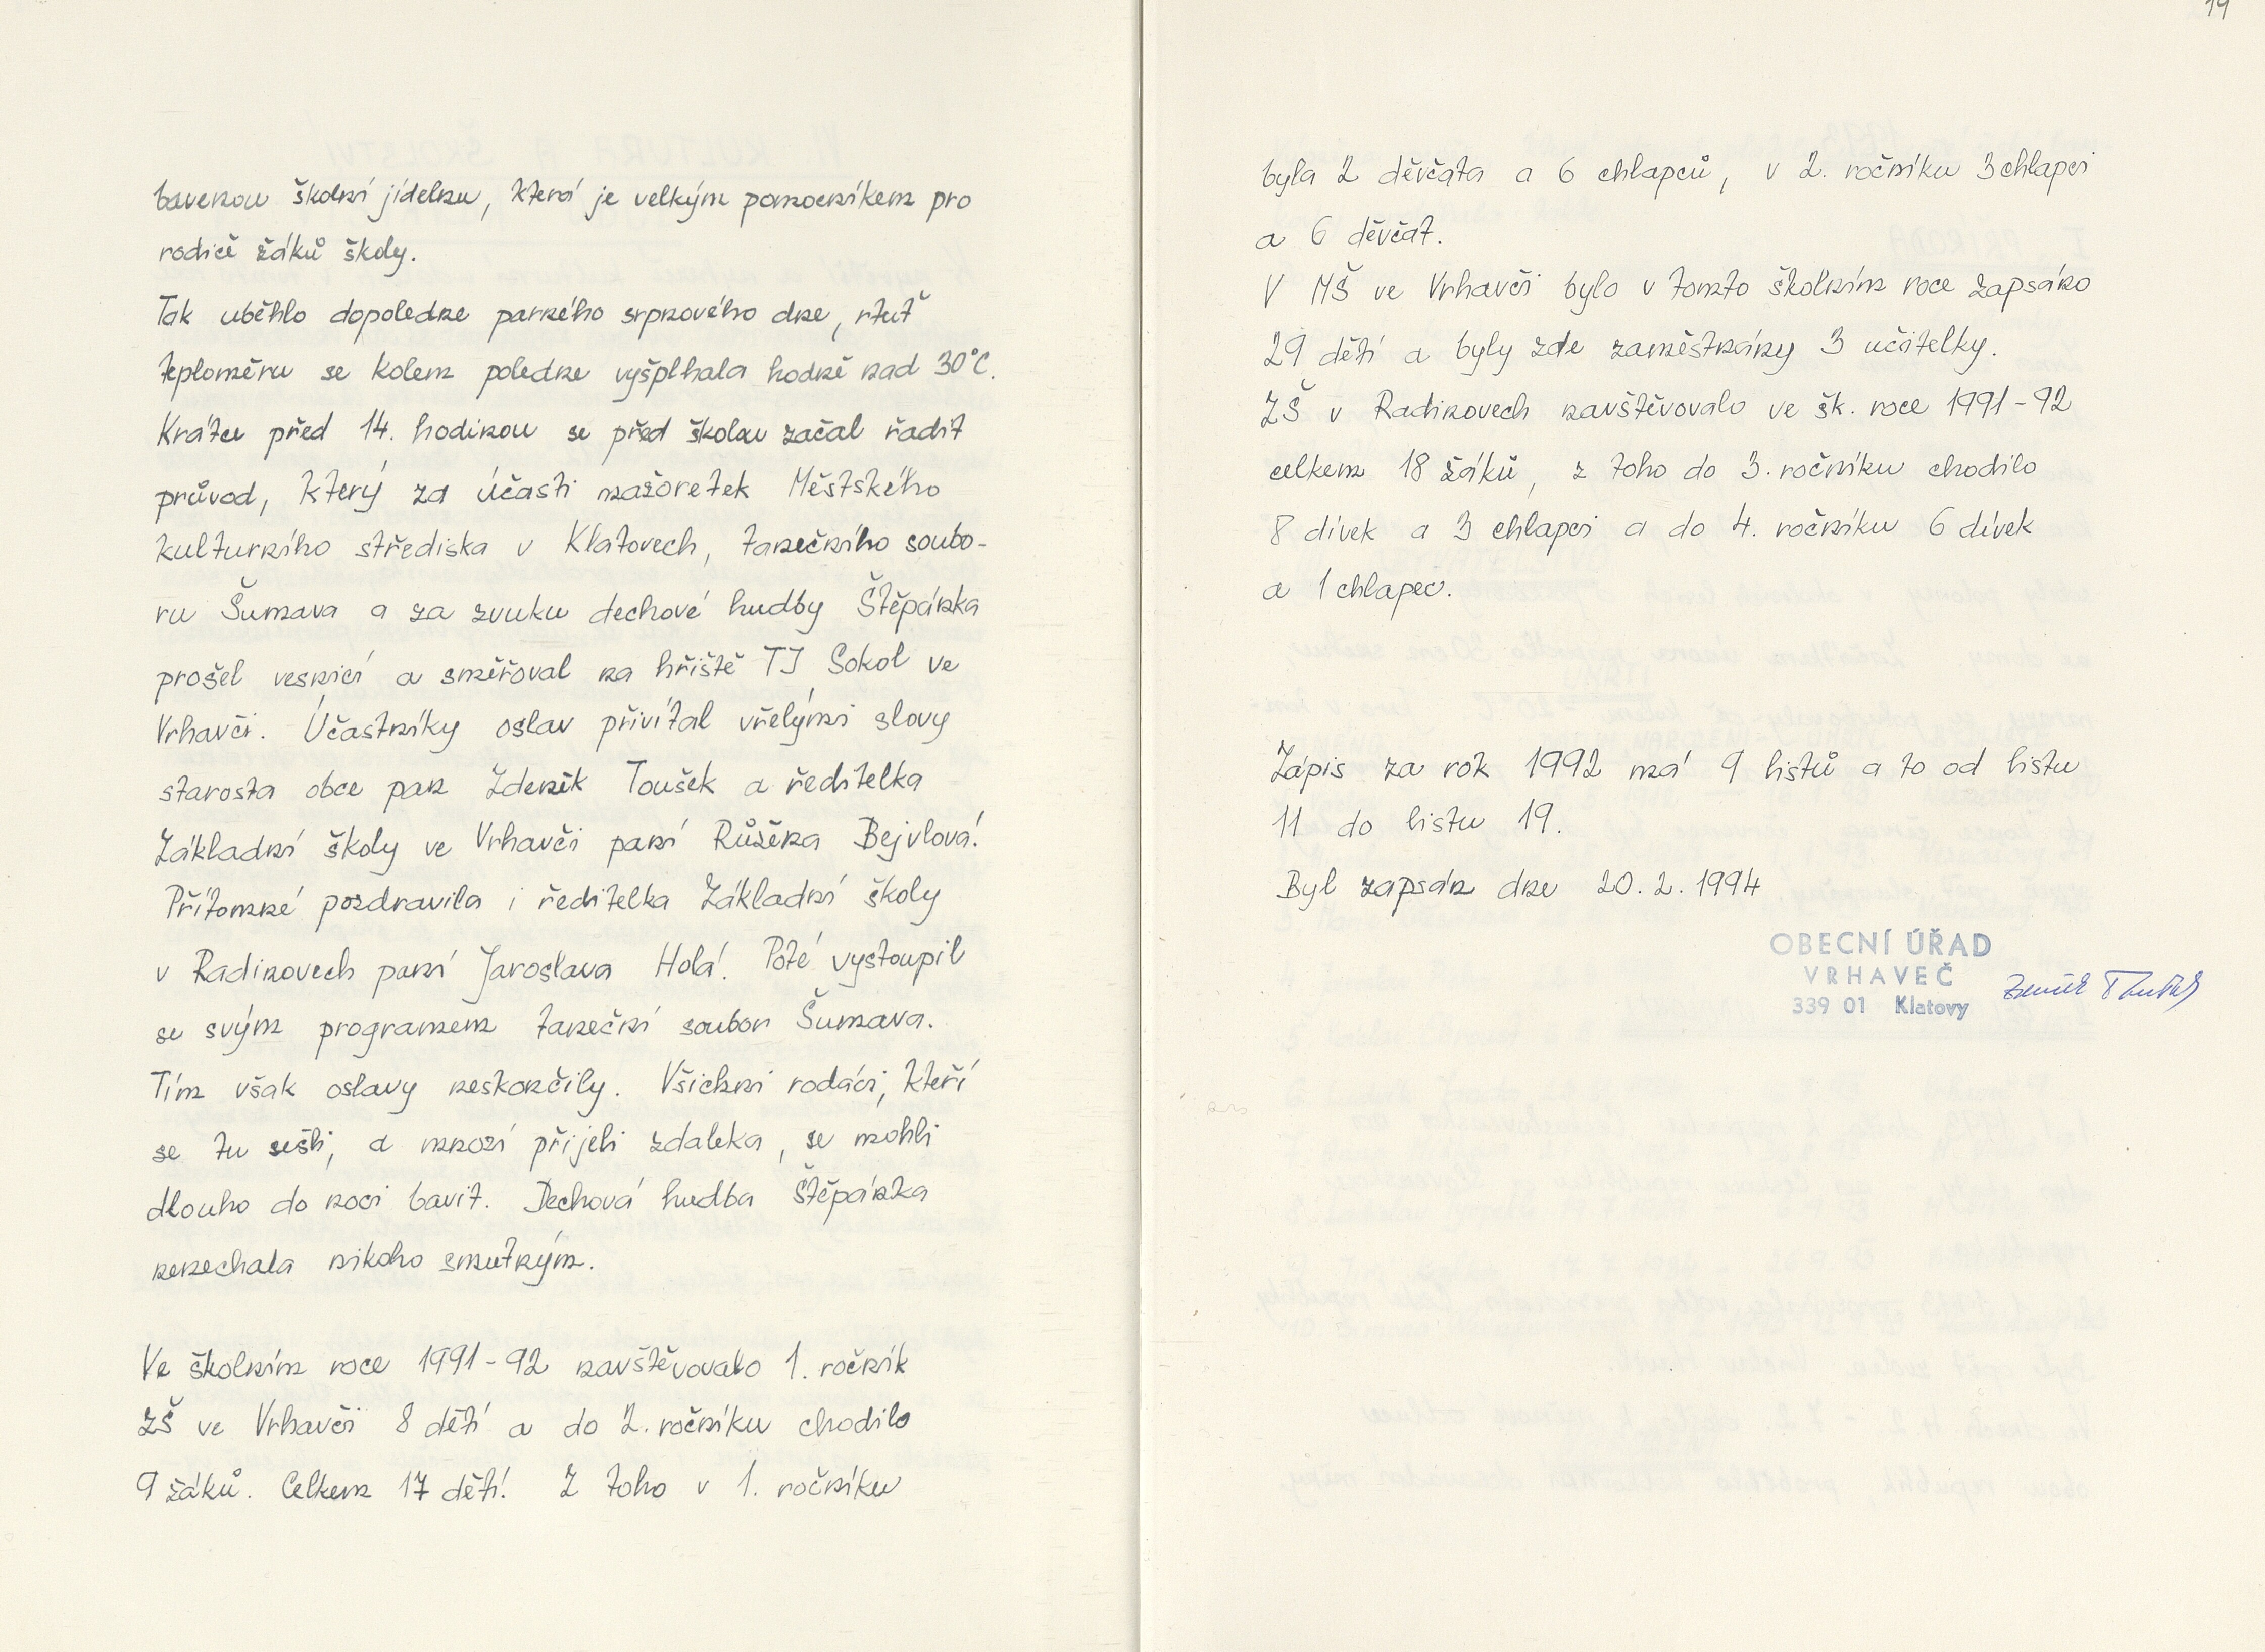 bavenou školní jídelnu, která je velkým pomocníkem pro
rodiče žáků školy.
Tak uběhlo dopoledne parného srpnového dne, rtuť
teploměru se kolem poledne vyšplhala hodně nad 30°C.
Krátce před 14. hodinou se před školou začal řadit
průvod, který za účasti mažoretek Městského
kulturního střediska v Klatovech, tanečního soubo-
ru Šumava a za zvuku dechové hudby Štěpánka
prošel vesnicí a směřoval na hřiště TJ Sokol ve
Vrhavči. Účastníky oslav přivítal vřelými slovy
starosta obce pan Zdeněk Toušek a ředitelka
Základní školy ve Vrhavči paní Růžena Bejvlová.
Přítomné pozdravila i ředitelka Základní školy
v Radinovech paní Jaroslava Holá. Poté vystoupil
se svým programem taneční soubor Šumava.
Tím však oslavy neskončily. Všichni rodáci, kteří
se tu sešli, a mnozí přijeli zdaleka, se mohli
dlouho do noci bavit. Dechová hudba Štěpánka
nenechala nikoho smutným.
Ve školním roce 1991-92 navštěvovalo 1. ročník
ZŠ ve Vrhavči 8 dětí a do 2. ročníku chodilo
9 žáků. Celkem 17 dětí. Z toho v 1. ročníku
19
byla 2 děvčata a 6 chlapců, v 2. ročníku 3 chlapci
a 6 děvčat.
V MŠ ve Vrhavči bylo v tomto školním roce zapsáno
29 dětí a byly zde zaměstnány 3 učitelky.
ZŠ v Radinovech navštěvovalo ve šk. roce 1991-92
celkem 18 žáků, z toho do 3. ročníku chodilo
8 dívek a 3 chlapci a do 4. ročníku 6 dívek
a 1 chlapec.
Zápis za rok 1992 má 9 listů a to od listu
11 do listu 19.
Byl zapsán dne 20.2.1994
OBECNÍ ÚŘAD
VRHAVEČ
339 01 Klatovy